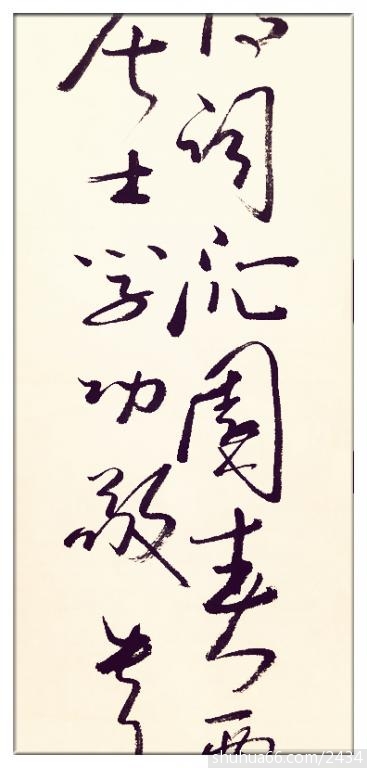 词沁园春雪
居士学功敬书
shuhua66.com/2434